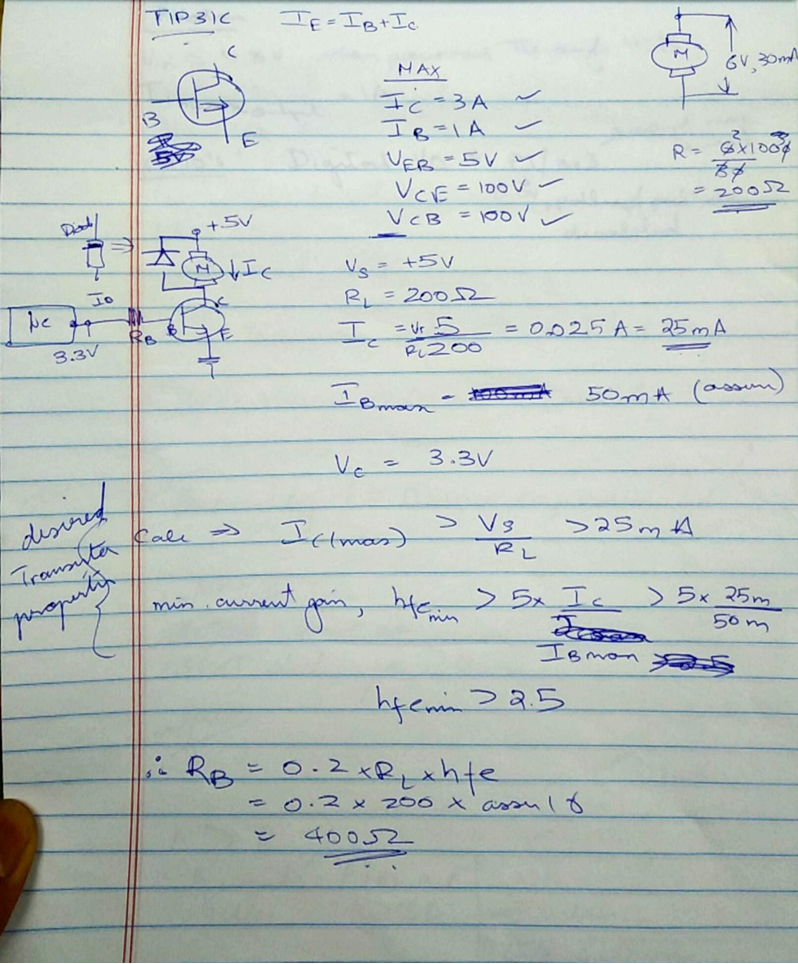 TIP31C I_E = I_B + I_C
C
B
E
MAX
I_C = 3A ✓
I_B = 1A ✓
V_EB = 5V ✓
V_CE = 100V ✓
V_CB = 100V ✓
M
6V, 30mA
R =
= 200Ω
Diode ⇒ +5V
M ↓ I_C
I_O
μC
3.3V
R_B
B
C
E
V_S = +5V
R_L = 200Ω
I_C = V_S 5 / R_L 200 = 0.025A = 25mA
I_Bmax = 50mA (assum)
V_C = 3.3V
desired
Transistor
properties
Calc ⇒ I_C(max) > V_S / R_L > 25mA
min. current gain, hfe_min > 5x I_C / I_Bmax > 5x 25m / 50m
hfe_min > 2.5
∴ R_B = 0.2 x R_L x hfe
= 0.2 x 200 x assu 10
= 400Ω